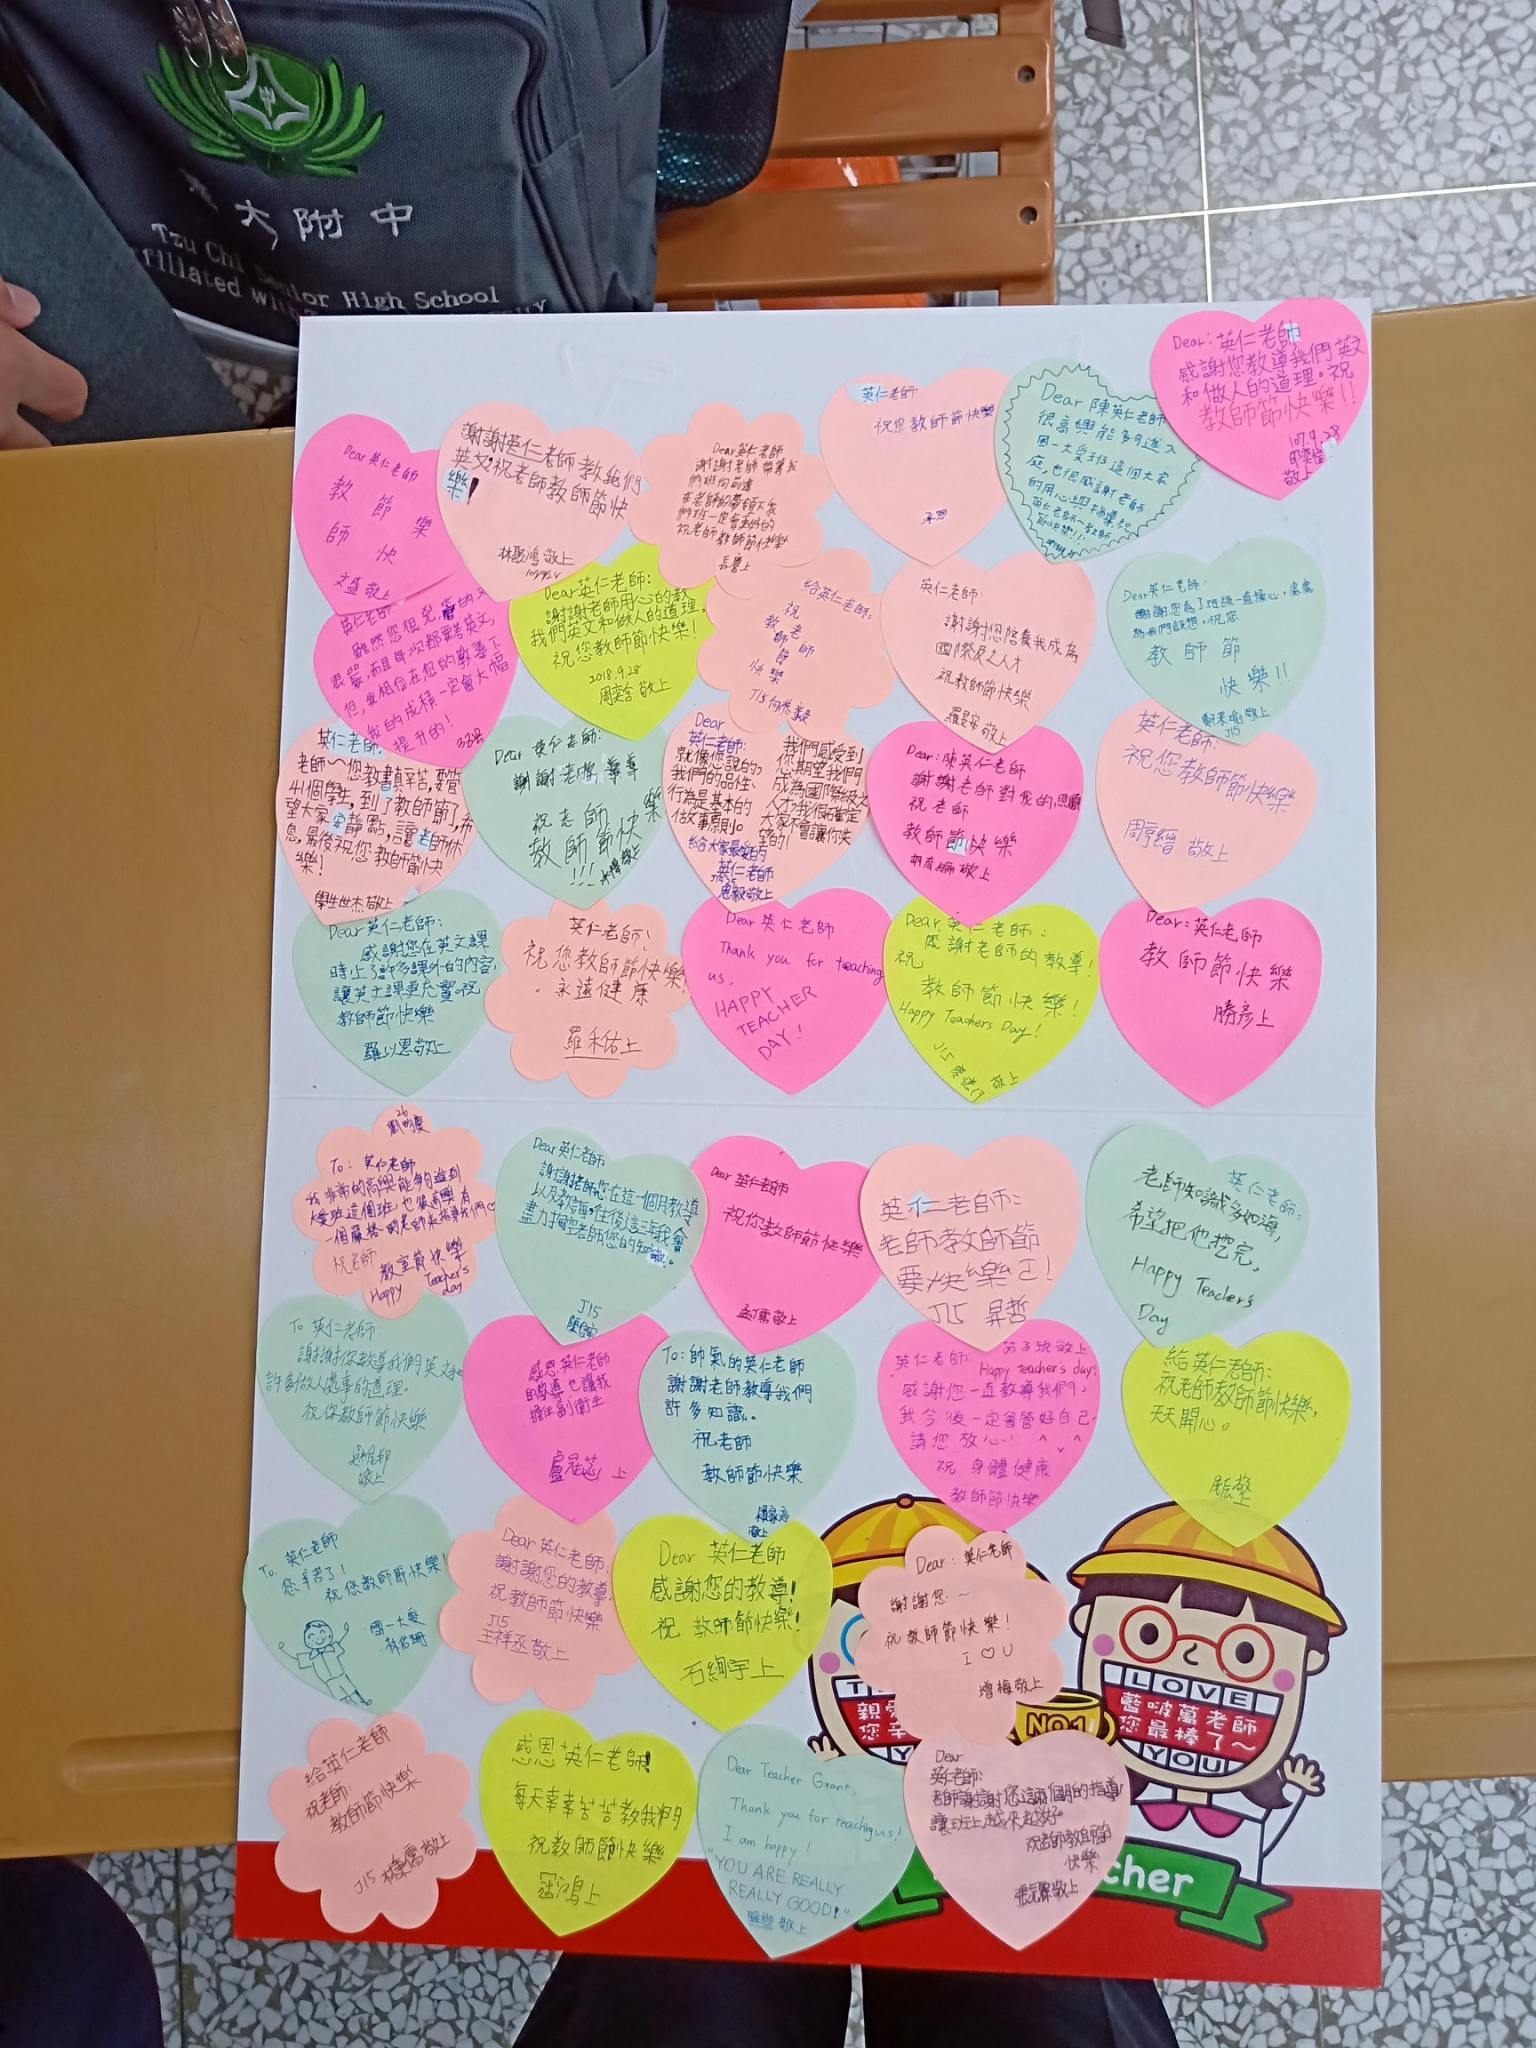 大附中
Tzu Chi Senior High School
Dear:英仁老師
感謝您教導我們英文
和做人的道理。祝
教師節快樂!!
107.9.28
敬上
英仁老師
祝您教師節快樂
Dear 陳英仁老師
很高興能夠進入
國一大愛班這個大家
庭,也很感謝老師
的用心與指導,祝
英仁老師~教師
節快樂!!!
Dear英仁老師
教 節 樂
師 快
文盛敬上
謝謝英仁老師教我們
英文,祝老師教師節快
樂!
林聖鴻 敬上
Dear英仁老師
謝謝老師帶著我
們班向前進
在老師的帶領下我
們班一定會更好的
祝老師 教師節快樂
英仁老師
雖然您很兇,
但,我相信在您的教導下
我的成績一定會大幅
提升的!
Dear英仁老師:
謝謝老師用心的教
我們英文和做人的道理。
祝您教師節快樂!
2018.9.28
周奕含 敬上
給英仁老師:
祝
教老
師師
節
快樂
J15何恭毅
英仁老師:
謝謝您陪養我成為
國際級之人才
祝教師節快樂
羅旻安 敬上
Dear英仁老師:
謝謝您為了班級一直操心,處處
為我們設想,祝您
教 師 節
快 樂!!
敬上
J15
英仁老師:
老師~您教書真辛苦,要管
41個學生,到了教師節了,希
望大家安靜點,讓老師休
息,最後祝您教師節快
樂!
學生世杰 敬上
Dear 英仁老師:
謝謝老師
祝老師
教師節快樂
!!!
敬上
Dear
英仁老師:
就像您說的,
我們的品性、
行為是基本的
做事原則。
我們感受到
你期望我們
成為國際級之
人才,我很確定
大家不會讓你失
望的!
給大家最好的
英仁老師
恩毅敬上
Dear:陳英仁老師
謝謝老師對我的恩惠
祝 老師
教師節快樂
敬上
英仁老師:
祝您教師節快樂
周亨縉 敬上
Dear英仁老師:
感謝您在英文課
時上了許多課外的內容,
讓英文課更充實。祝
教師節快樂
羅以恩敬上
英仁老師!
祝您教師節快樂
永遠健康
羅禾佑上
Dear 英仁老師
Thank you for teaching
us.
HAPPY
TEACHER
DAY!
Dear英仁老師:
感謝老師的教導!
祝
教師節快樂!
Happy Teachers Day!
J15 敬上
Dear:英仁老師
教師節快樂
勝彥上
26
To: 英仁老師
我非常的高興能夠進到
大愛班這個班,也很高興有
一個嚴格的老師來指導我們♡
祝老師
教室節快樂
Happy Teacher's
day
Dear英仁老師
謝謝老師您在這一個月教導
以及教誨,往後這三年我會
盡力掏空老師您的知識。
J15
Dear 英仁老師
祝你教師節快樂
孟儒敬上
英仁老師:
老師教師節
要快樂ㄛ!
J15 昇哲
英仁老師:
老師知識多如海,
希望把他挖完,
Happy Teacher's
Day
To 英仁老師
謝謝你教導我們英文和
許多做人處事的道理。
祝你教師節快樂
敬上
感恩英仁老師
的教導也讓我
擔任副衛生
盧冠蓉 上
To:帥氣的英仁老師
謝謝老師教導我們
許多知識。
祝老師
教師節快樂
敬上
英仁老師:
Happy teacher's day!
感謝您一直教導我們,
我今後一定會管好自己,
請您放心! ^ ^
祝 身體健康
教師節快樂
給英仁老師:
祝老師教師節快樂,
天天開心。
To:英仁老師
您辛苦了!
祝您教師節快樂!
國一大愛
Dear 英仁老師:
謝謝您的教導,
祝教師節快樂
J15
王祥丞 敬上
Dear 英仁老師
感謝您的教導!
祝 教師節快樂!
石絢宇上
Dear:英仁老師
謝謝您~
祝教師節快樂!
I ♡ U
增梅敬上
LOVE
藍啵萬老師
您最棒了~
YOU
NO.1
給英仁老師
祝老師:
教師節快樂
J15 敬上
感恩英仁老師!
每天辛辛苦苦教我們
祝教師節快樂
Dear Teacher Grant,
Thank you for teaching us!
I am happy!
"YOU ARE REALLY
REALLY GOOD!"
敬上
Dear
英仁老師:
老師謝謝您這兩個月的指導
讓班上越來越好。
祝老師教師節
快樂
敬上